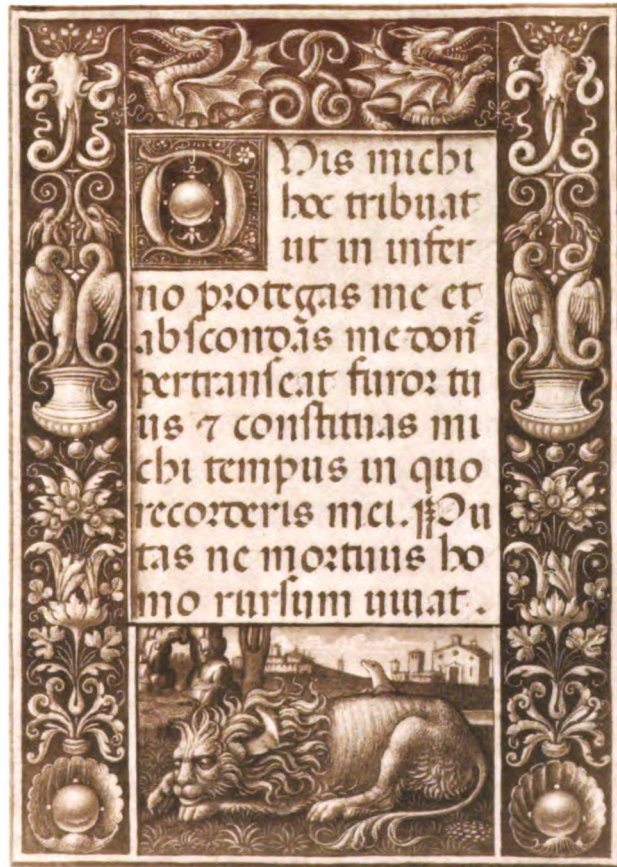 QVis michi
hoc tribuat
ut in infer
no protegas me et
abscondas me don̄
pertranseat furor tu
us ⁊ constituas mi
chi tempus in quo
recorderis mei. Pu
tas ne mortuus ho
mo rursum uiuat.